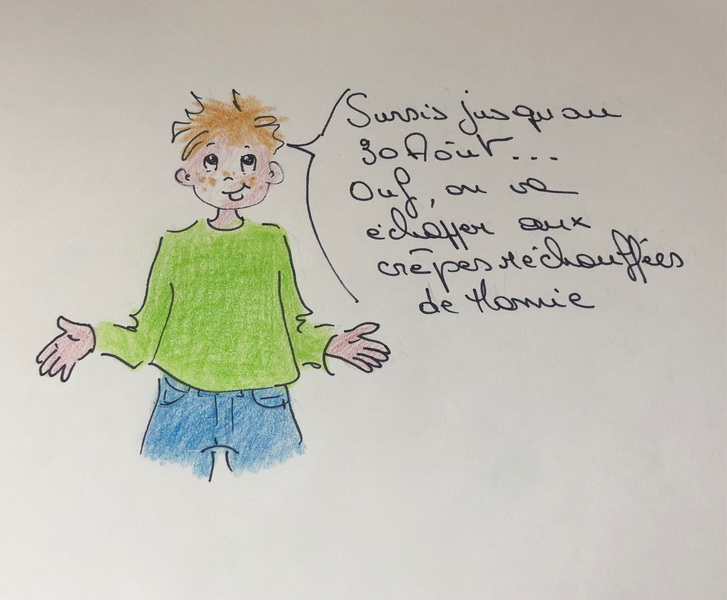 Sursis jusqu'au
30 Août...
Ouf, on va
échapper aux
crêpes réchauffées
de Mamie